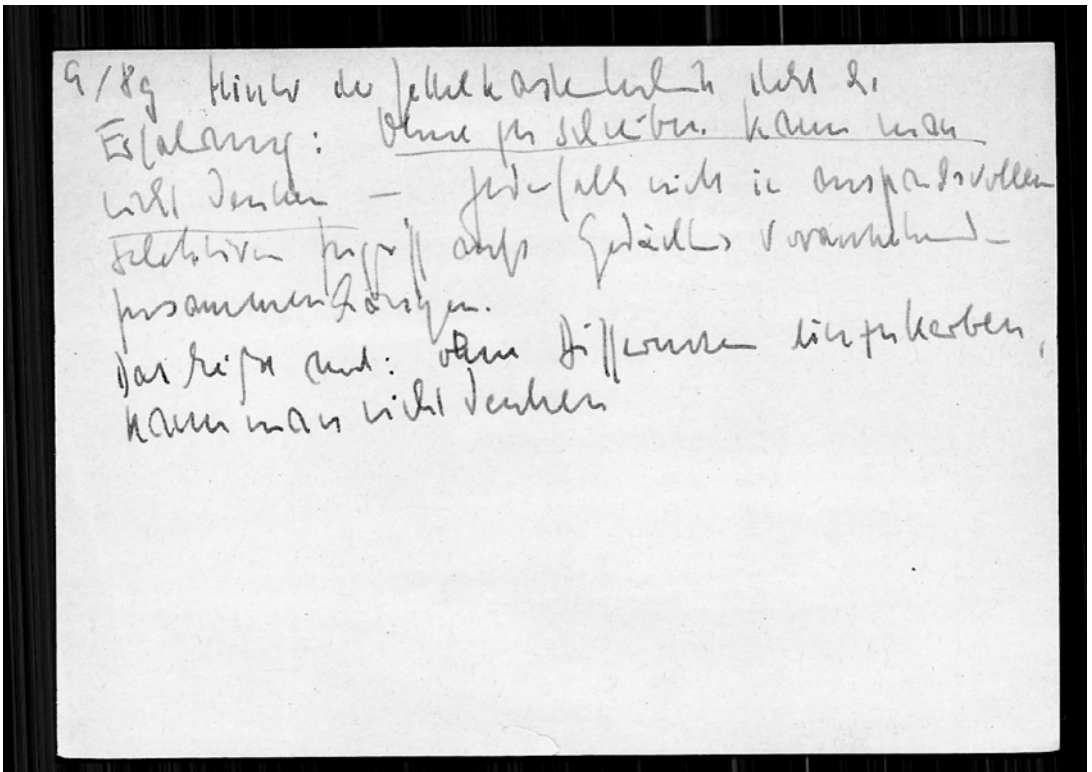 9/8g Hinter der Zettelkastentechnik steht d.
Erfahrung: Ohne zu schreiben kann man
nicht denken – jedenfalls nicht in anspruchsvollen
selektiven Zugriff aufs Gedächtnis voraussehend-
zusammenhängen.
Das heißt auch: ohne Differenzen einzukerben,
kann man nicht denken